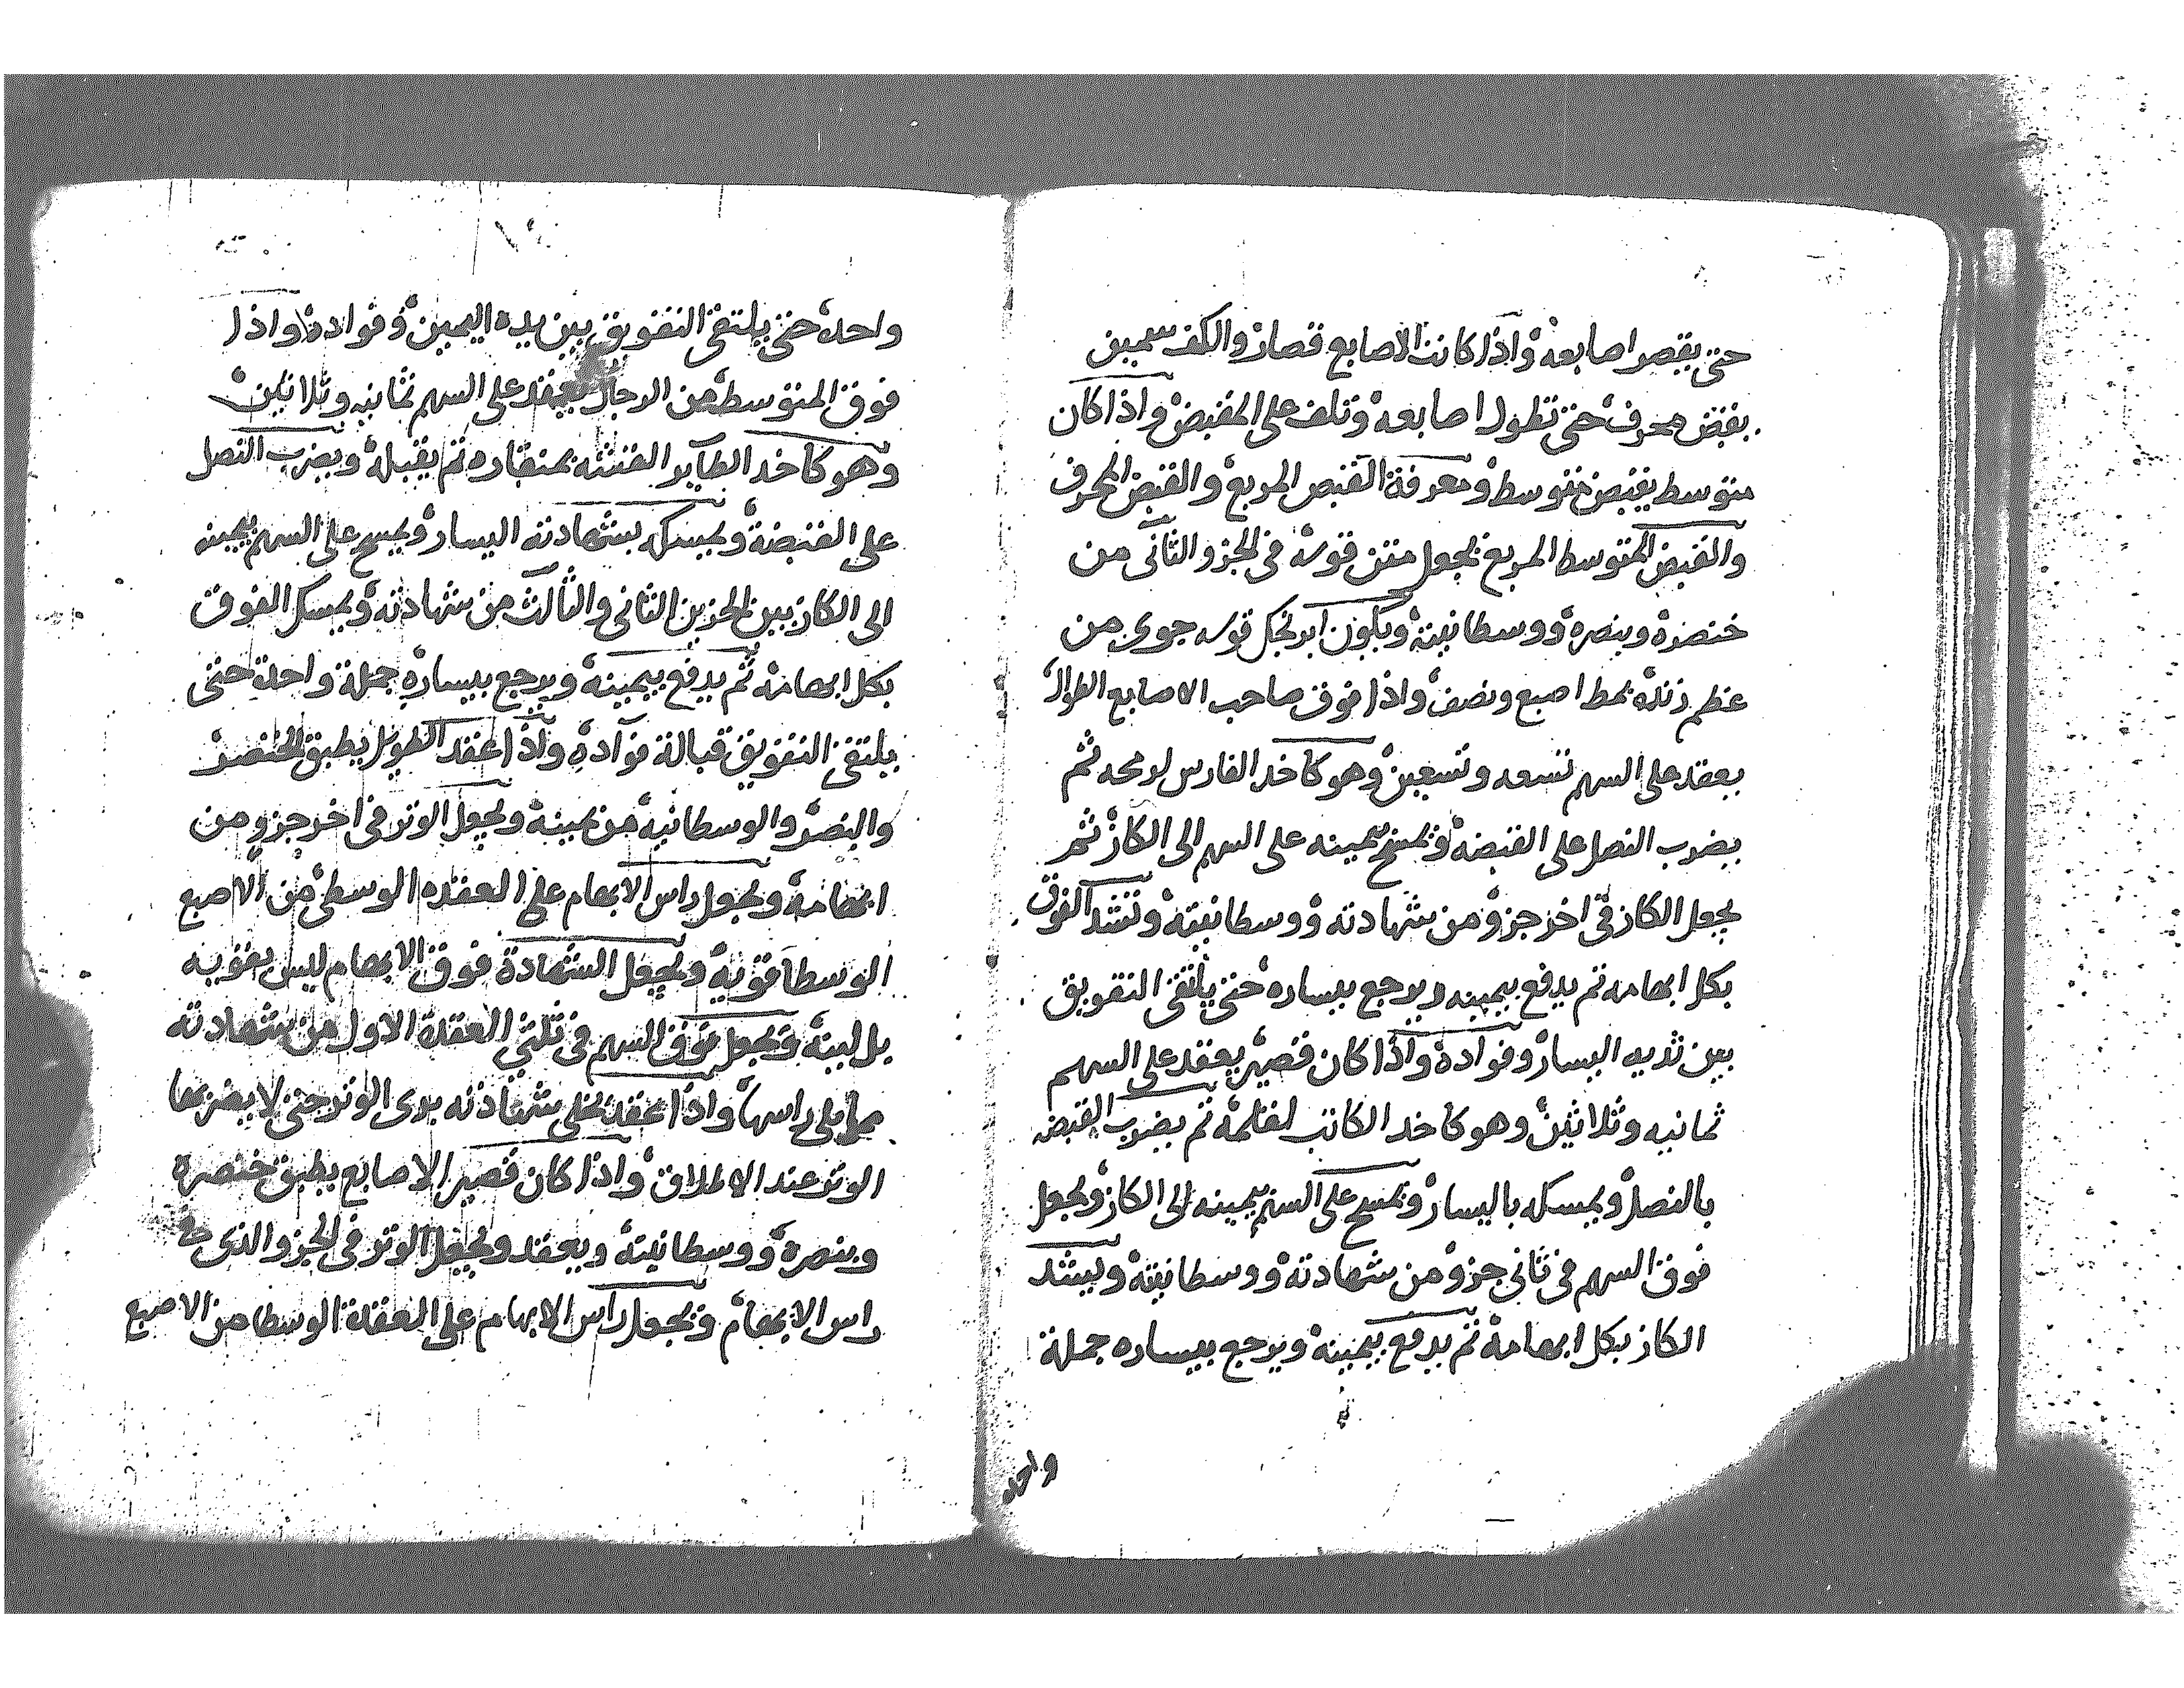 حتى يقصر اصابعه واذا كانت الاصابع قصار والكف سمين
يقبض محرف حتى تطول اصابعه وتلف على المقبض واذا كان
متوسط يقبض متوسط ومعرفة القبض المربع والقبض المحرف
والقبض المتوسط المربع يجعل متن قوسه في الجزو الثاني من
خنصره وبنصره ووسطانيته ويكون قوسه جوى من
عظم زنده بمط اصبع ونصف واذا فوق صاحب الاصابع الطوال
يعقد على السهم تسعه وتسعين وهو كاخد الفارس لرمحه ثم
يضرب النصل على القبضه ويمسح بيمينه على السهم الى الكاز ثم
يجعل الكاز في اخر جزو من شهادته ووسطانيته وتشد الفوق
بكل ابهامه ثم يدفع بيمينه ويرجع بيساره حتى يلتقى التفويق
بين ثديه اليسار وفواده واذا كان قصير يعقد على السهم
ثمانيه وثلاثين وهو كاخد الكاتب لقلمه ثم يضرب القبضه
بالنصل ويمسكه باليسار ويمسح على السهم بيمينه الى الكاز ويجعل
فوق السهم في ثاني جزو من شهادته ووسطانيته ويشد
الكاز بكل ابهامه ثم يدفع بيمينه ويرجع بيساره جملة
واحده
واحده حتى يلتقى التفويق بين يده اليمين وفواده واذا
فوق المتوسط من الرجال يعقد على السهم ثمانيه وثلاثين
وهو كاخد الطاير القشه بمنقاره ثم يقبله ويضرب النصل
على القبضه ويمسكه بشهادته اليسار ويمسح على السهم بيمينه
الى الكاز بين الجزين الثاني والثالث من شهادته ويمسك الفوق
بكل ابهامه ثم يدفع بيمينه ويرجع بيساره جملة واحدة حتى
يلتقى التفويق قبالة فواده واذا عقد الطويل يطبق الخنصر
والبنصر والوسطانيه من يمينه ويجعل الوتر في اخر جزو من
ابهامه ويجعل راس الابهام على العقده الوسطى من الاصبع
الوسطا قويه ويجعل الشهادة فوق الابهام ليس بقويه
بل لينه ويجعل فوق السهم في ثلثي العقدة الاول من شهادته
مما يلى راسها واذا عقد يخلى شهادته برى الوتر حتى لا يضربها
الوتر عند الاطلاق واذا كان قصير الاصابع يطبق خنصره
وبنصره ووسطانيته ويعقد ويجعل الوتر في الجزو الذى
راس الابهام ويجعل راس الابهام على العقدة الوسطا من الاصبع